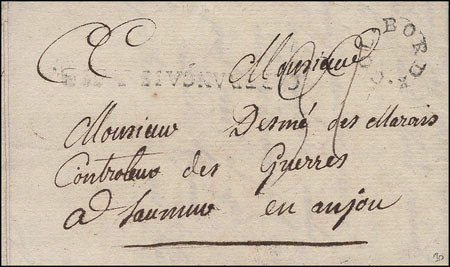 Monsieur
COL. BORD.
Monsieur Desmé des Marais
Controleur des Guerres
a Saumur en anjou